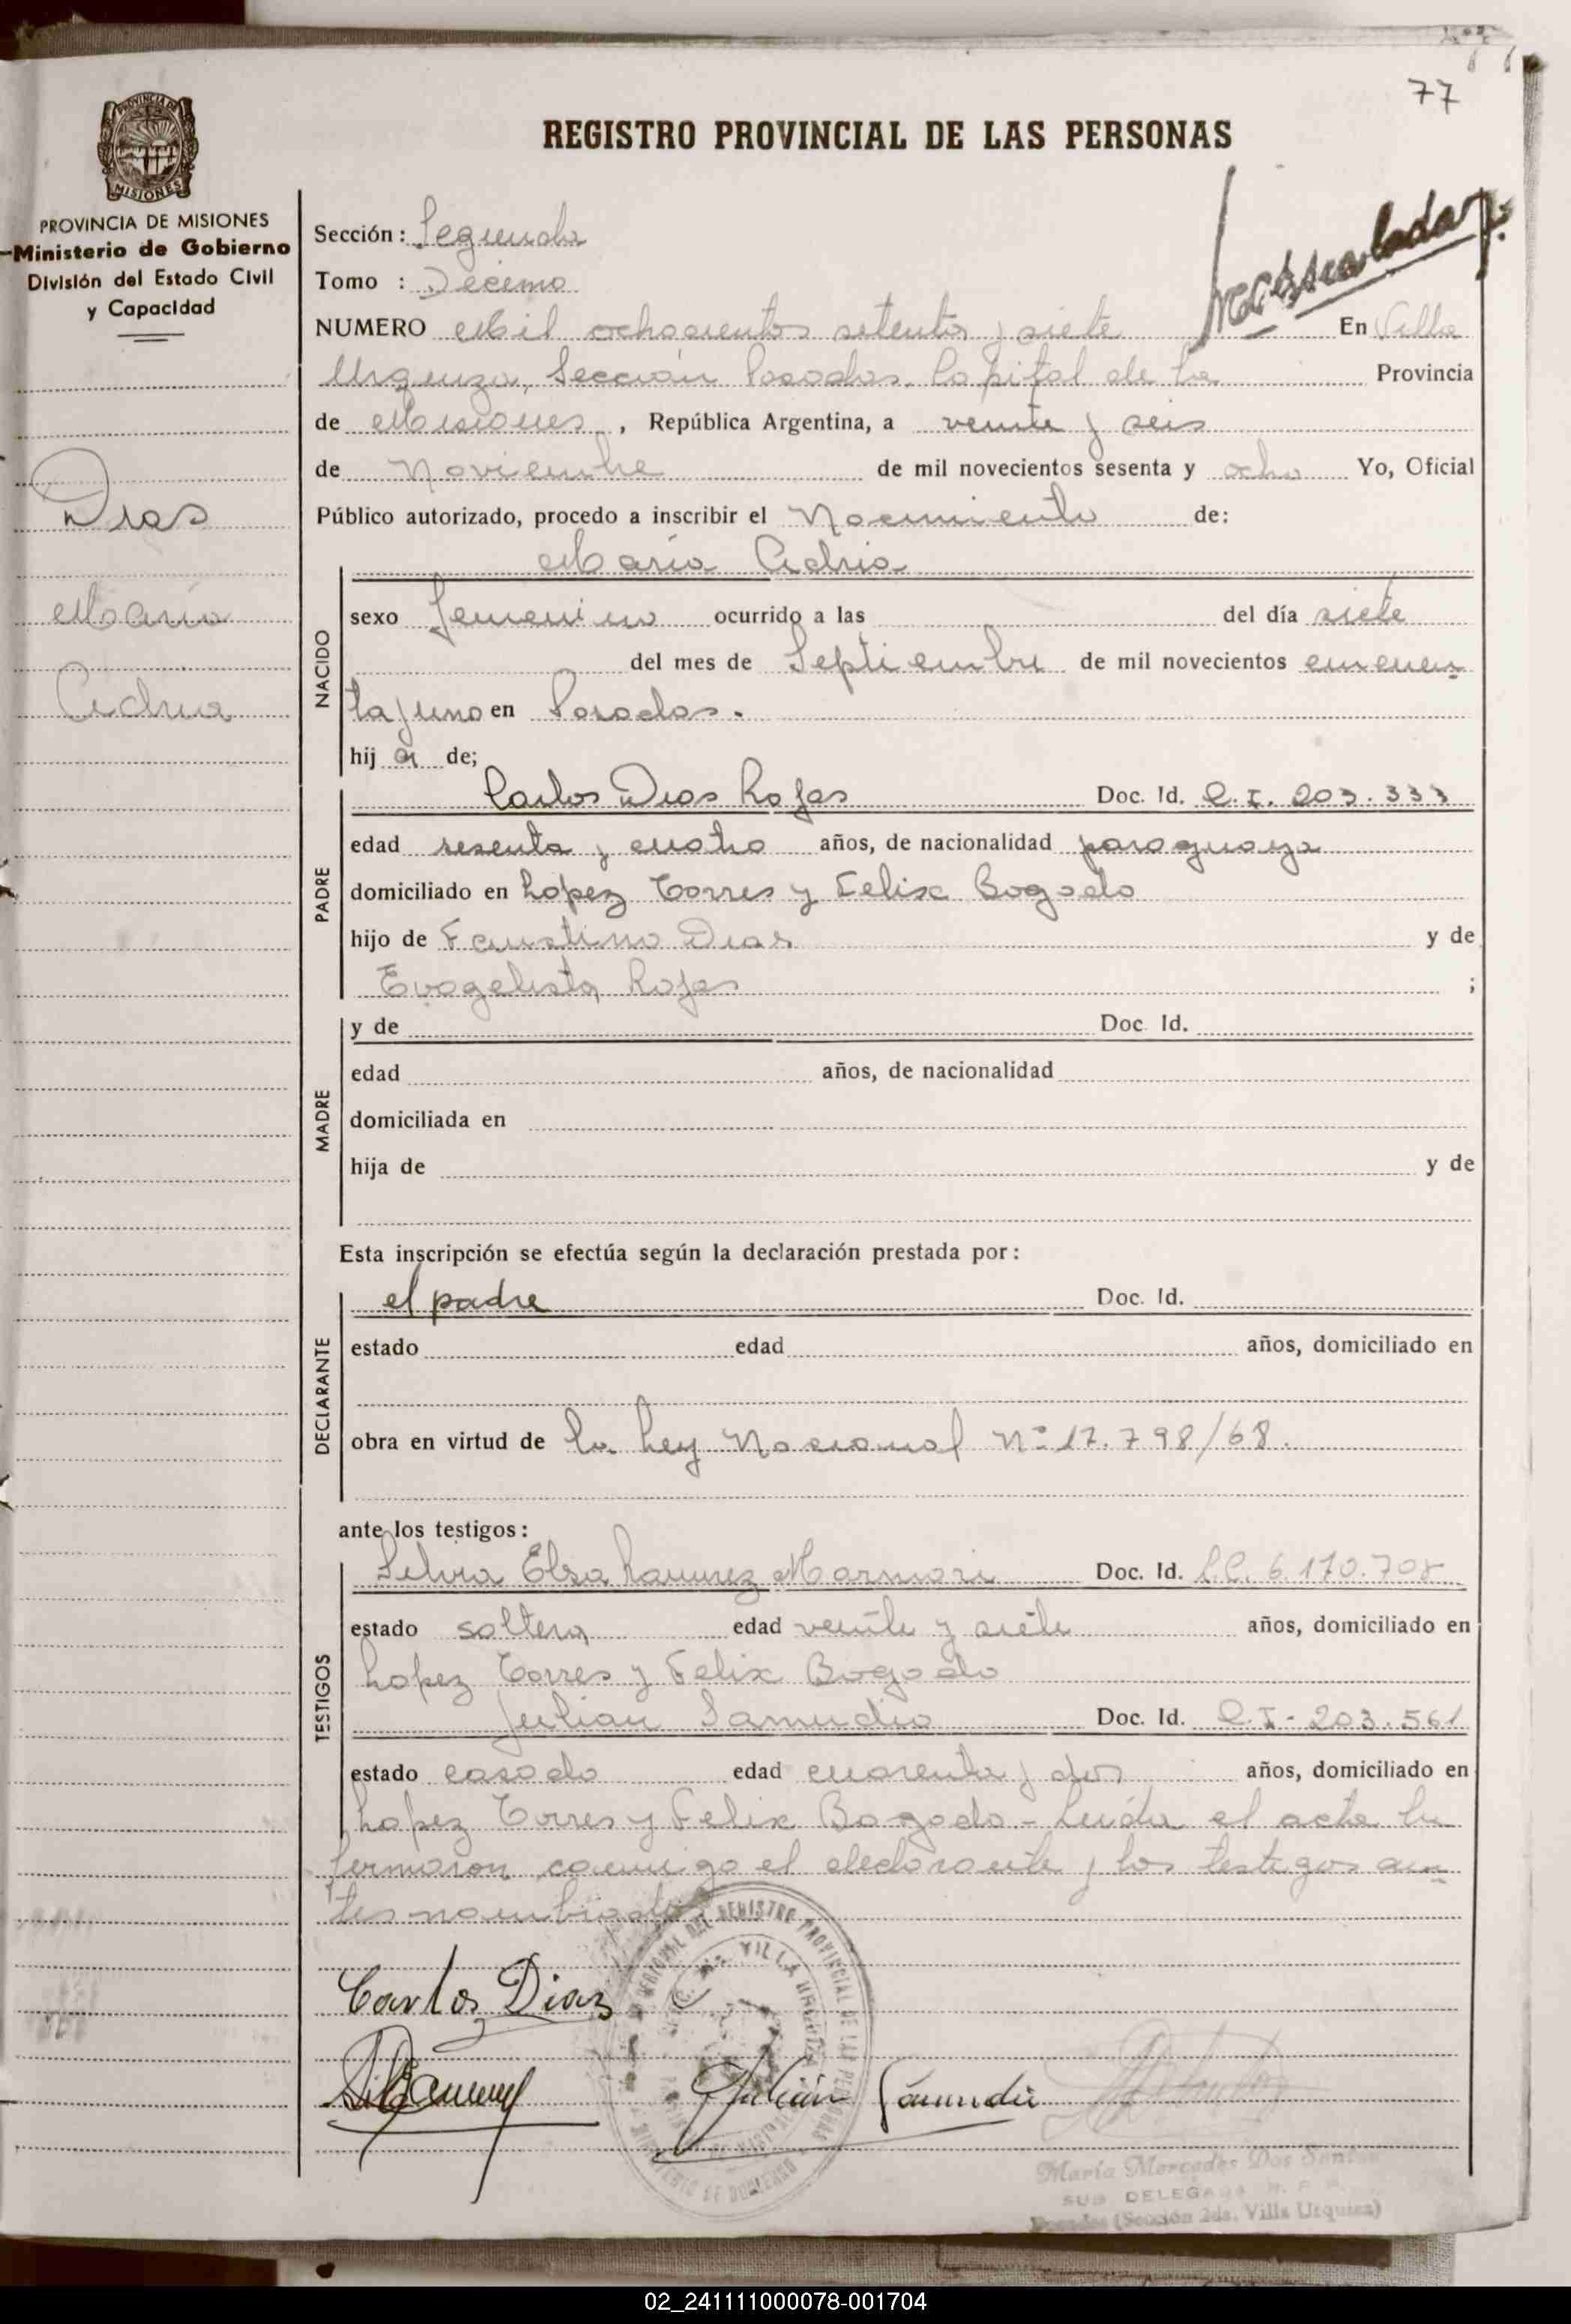 77
REGISTRO PROVINCIAL DE LAS PERSONAS
PROVINCIA DE
MISIONES
PROVINCIA DE MISIONES
Ministerio de Gobierno
División del Estado Civil
y Capacidad
Dias
Maria
Cidria
Sección: Segunda
Tomo : Décimo
NUMERO Mil ochocientos setenta y siete En Villa
Urquiza, Sección Posadas Capital de la Provincia
de Misiones, República Argentina, a veinte y seis
de Noviembre de mil novecientos sesenta y ocho Yo, Oficial
Público autorizado, procedo a inscribir el Nacimiento de:
NACIDO
María Cidria
sexo femenino ocurrido a las del día siete
del mes de Septiembre de mil novecientos cincuen
ta y uno en Posadas.
hij a de;
PADRE
Carlos Dias Rojas Doc. Id. C.I. 203.333
edad sesenta y cuatro años, de nacionalidad paraguaya
domiciliado en Lopez Torres y Felix Bogado
hijo de Faustino Dias y de
Evagelista Rojas ;
MADRE
y de Doc. Id.
edad años, de nacionalidad
domiciliada en
hija de y de
Esta inscripción se efectúa según la declaración prestada por:
DECLARANTE
el padre Doc. Id.
estado edad años, domiciliado en
obra en virtud de la Ley Nacional Nº 17.798/68.
ante los testigos:
TESTIGOS
Silvia Elsa Ramirez Marmori Doc. Id. L.C. 6.170.708
estado soltera edad veinte y siete años, domiciliado en
Lopez Torres y Felix Bogado
Julian Samudio Doc. Id. C.I- 203.561
estado casado edad cuarenta y dos años, domiciliado en
Lopez Torres y Felix Bogado - Leída el acta la
firmaron conmigo el declarante y los testigos an
tes nombrados
Carlos Diaz
Julián Samudio
María Mercedes Dos Santos
SUB DELEGADA R. P. P.
Posadas (Sección 2da. Villa Urquiza)
02_241111000078-001704